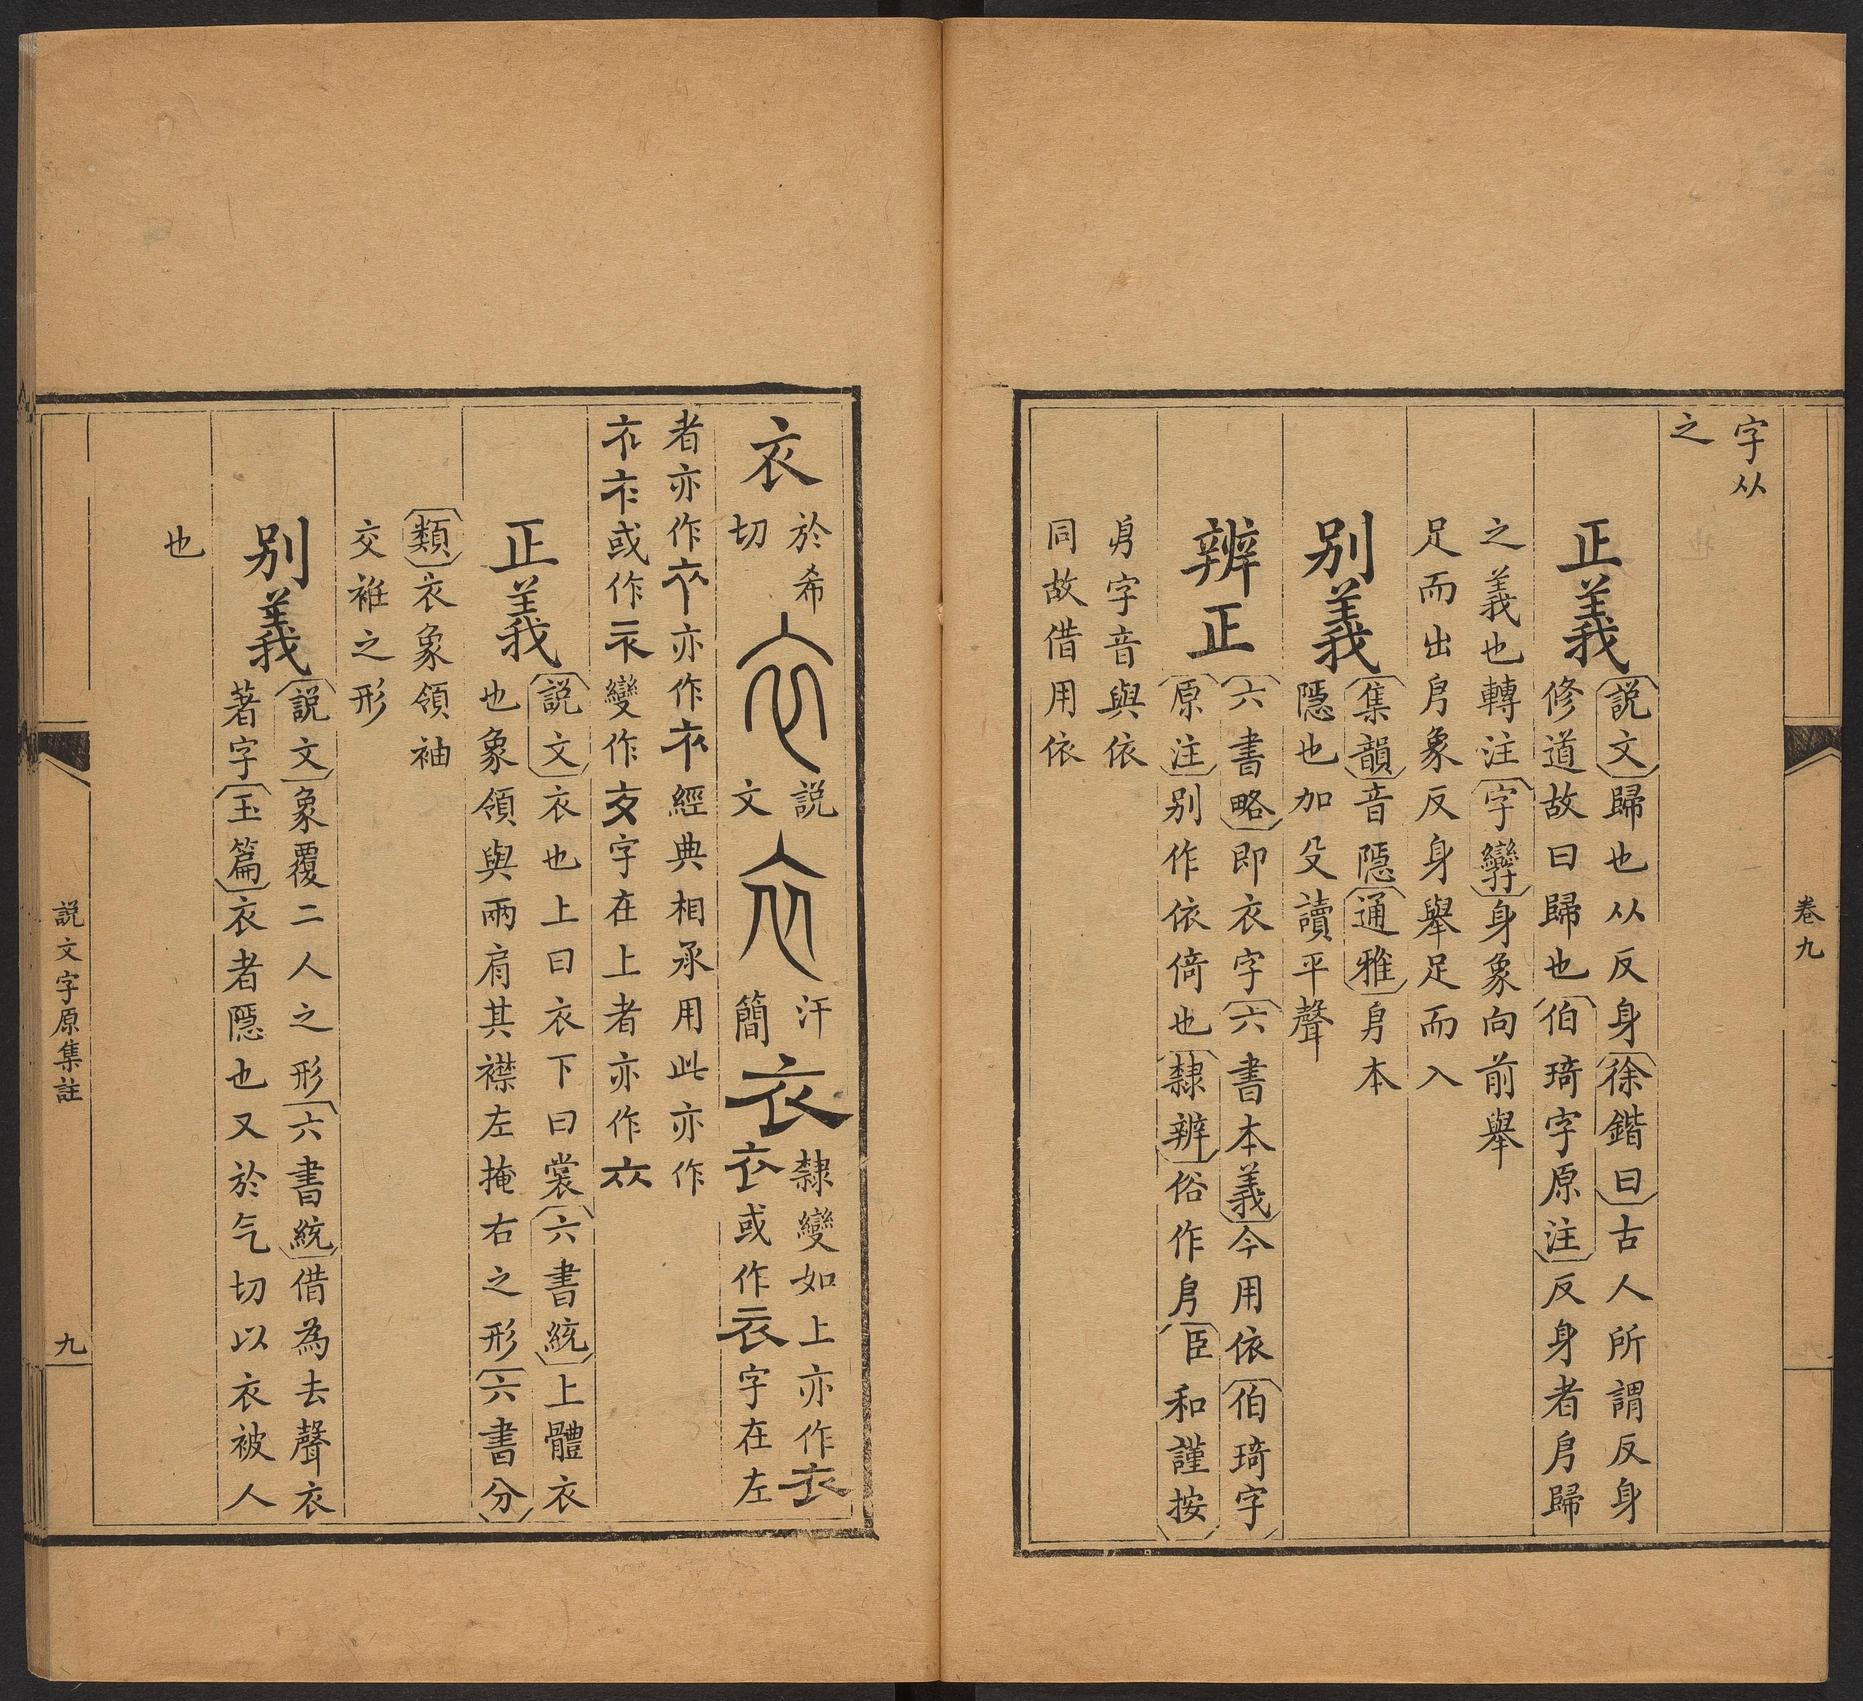 卷九
字从
之
正義
說文歸也从反身徐鍇曰古人所謂反身
修道故曰歸也伯琦字原注反身者㐆歸
之義也轉注字孿身象向前舉
足而出㐆象反身舉足而入
別義
集韻音隱通雅㐆本
隱也加殳讀平聲
辨正
六書略即衣字六書本義今用依伯琦字
原注別作依倚也隸辨俗作㐆臣和謹按
㐆字音與依
同故借用依
衣
於希
切
說
文
汗
簡
衣
隸變如上亦作衣
衣或作衣字在左
者亦作亦作經典相承用此亦作
或作變作字在上者亦作
正義
說文衣也上曰衣下曰裳六書統上體衣
也象領與兩肩其襟左掩右之形六書分
類衣象領袖
交衽之形
別義
說文象覆二人之形六書統借為去聲衣
著字玉篇衣者隱也又於气切以衣被人
也
說文字原集註
九